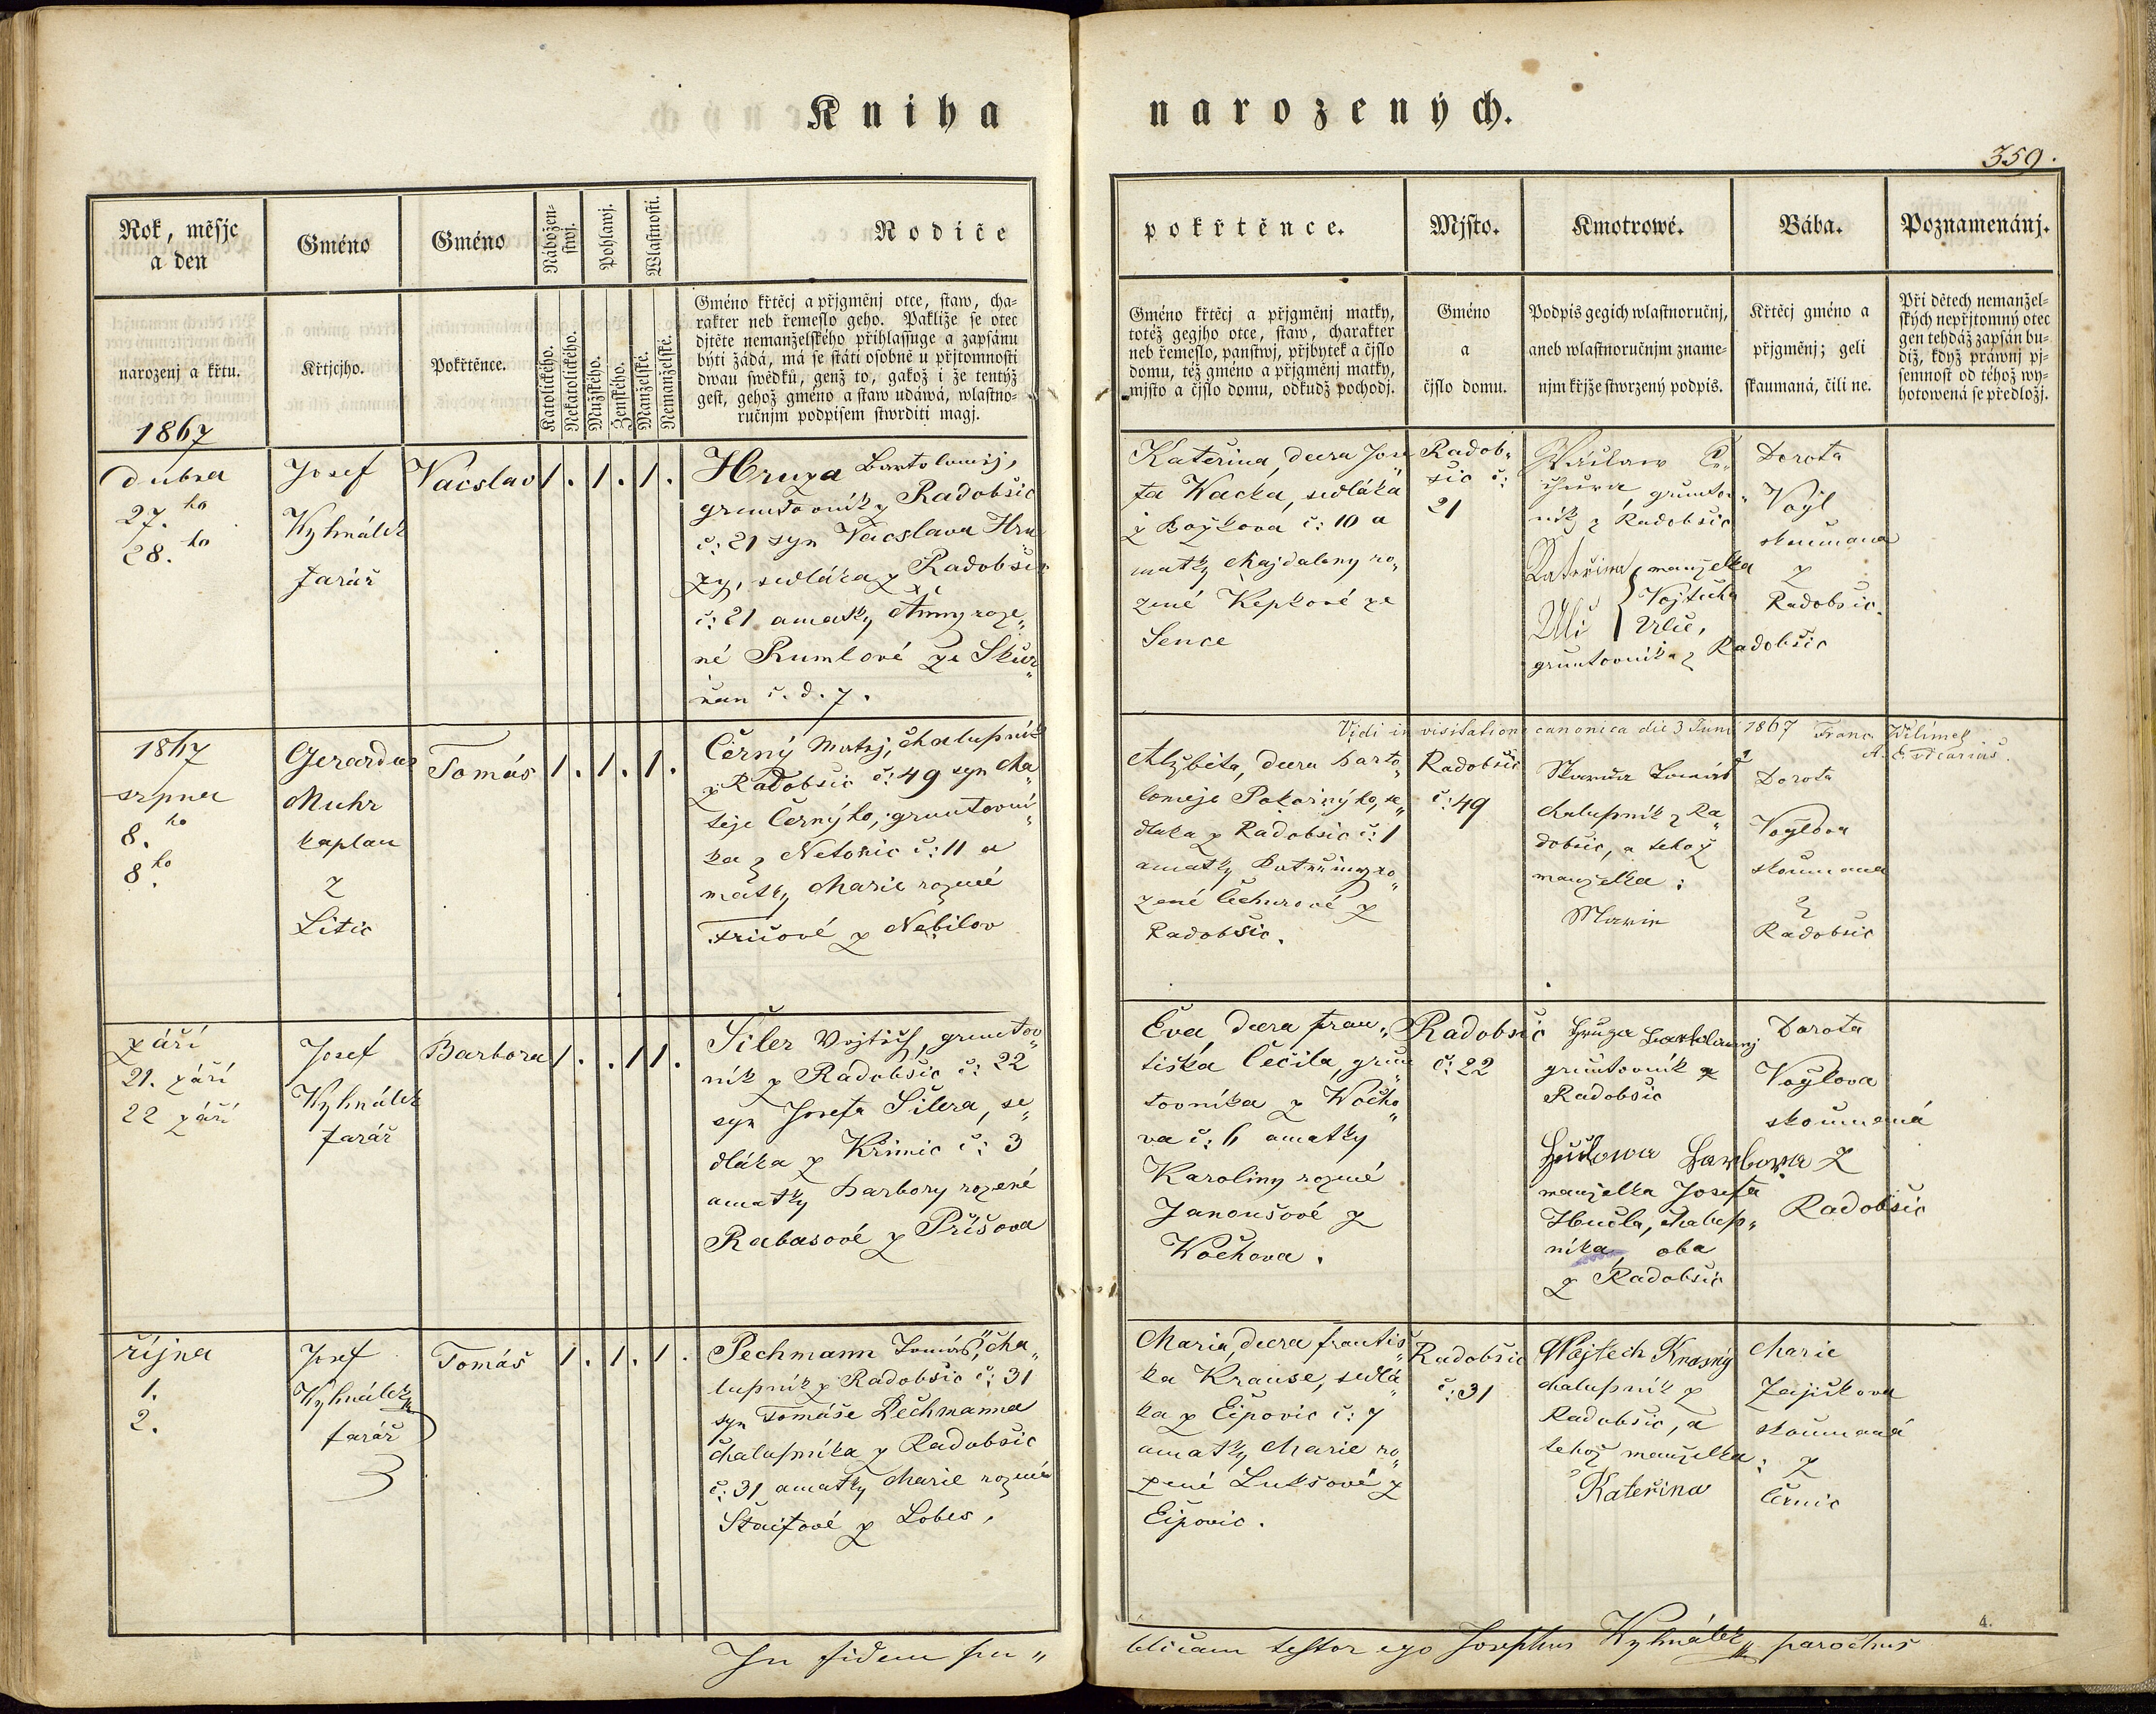 Kniha narozených.
359.
Rok, měsýc
a den
narozenj a křtu.
1867
Gméno
Křtjcýho.
Gméno
Pokřtěnce.
Nábožen-
stwj.
Katolického.
Nekatolického.
Pohlawj.
Mužského.
Ženského.
Wlastnosti.
Manželské.
Nemanželské.
Rodiče
Gméno křtěcj a přjgměnj otce, staw, cha-
rakter neb řemeslo geho. Pakliže se otec
djtěte nemanželského přihlassuge a zapsánu
býti žádá, má se státi osobně u přjtomnosti
dwau swědků, genž to, gakož i že tentýž
gest, gehož gméno a staw udáwá, wlastno-
ručnjm podpisem stwrditi magj.
pokřtěnce.
Gméno křtěcj a přjgměnj matky,
totéž gegjho otce, staw, charakter
neb řemeslo, panstwj, přjbytek a čjslo
domu, též gméno a přjgměnj matky,
mjsto a čjslo domu, odkudž pochodj.
Mjsto.
Gméno
a
čjslo domu.
Kmotrowé.
Podpis gegich wlastnoručnj,
aneb wlastnoručnjm zname-
njm křjže stwrzený podpis.
Bába.
Křtěcj gméno a
přjgměnj; geli
skaumaná, čili ne.
Poznamenánj.
Při dětech nemanžel-
ských nepřjtomný otec
gen tehdáž zapsán bu-
diž, když práwnj pj-
semnost od téhož wy-
hotowená se předložj.
dubna
27. ho
28. ho
Josef
Wyhnálek
farář
Vácslav
1. 1. 1.
Hruza Bartoloměj,
gruntovník z Radobšic
č: 21 syn Vácslava Hru
zy, sedláka z Radobšic
č: 21 a matky Anny roze„
né Rumlové ze Skur„
ňan č. d. 7.
Kateřina, dcera Jose
fa Wacka, sedláka
z Božkova č: 10 a
matky Majdaleny ro„
zené Kepkové ze
Sence
Radob„
šic č:
21
gruntov„
ník z Radobšic
Kateřina manželka
Ulč Vojtěcha
Ulče,
gruntovníka z Radobšic
Dorota
Vogl
skoumana
z
Radobšic.
Vidi in visitatione canonica die 3 Juni 1867 Franc. Wilímek
A. E. Vicarius.
1867
srpna
8. ho
8. ho
Gerardus
Muhr
kaplan
z
Litic
Tomás
1. 1. 1.
Černý Matěj, chalupník
z Radobšic č: 49 syn Ma
těje Černýho, gruntovní„
ka z Netonic č: 11 a
matky Marie rozené
Fričové z Nebilov
Alžběta, dcera Barto„
loměje Pokornýho, se„
dlaka z Radobšic č: 1
a matky Kateřiny ro„
zené Čechurové z
Radobšic.
Radobšic
č: 49
Tomáš
chalupník z Ra„
dobšic, a tehož
manželka:
Marie
Dorota
Voglova
skoumana
z
Radobšic
září
21. září
22 září
Josef
Wyhnálek
farář
Barbora
1. . 1 1.
Šiler Vojtěch, gruntov„
ník z Radobšic č: 22
syn Josefa Šilera, se„
dláka z Křimic č: 3
a matky Barbory rozené
Rabasové z Příšova
Eva, dcera Fran„
tiška Čečila, grun„
tovníka z Wocho„
va č: 6 a matky
Karoliny rozené
Janoušové z
Wochova.
Radobšic
č: 22
Hruza Bartolomej
gruntovník z
Radobšic
Barbora
manželka Josefa
Hučla, chalup„
níka, oba
z Radobšic
Dorota
Voglova
skoumaná
z
Radobšic
října
1.
2.
Josef
Wyhnálek
farář
Tomáš
1. 1. 1.
Pechmann Tomáš, cha„
lupník z Radobšic č: 31
syn Tomáše Pechmanna
chalupníka z Radobšic
č: 31 a matky Marie rozené
Štaifové z Lobes.
Maria, dcera Františ„
ka Krause, sedlá„
ka z Ejpovic č: 7
a matky Marie ro„
zené Lukšové z
Ejpovic.
Radobšic
č: 31
Wojtěch Krásný
chalupník z
Radobšic, a
tehož manželka:
Kateřina
Marie
Zajičkova
skoumaná
z
Černic
4.
In fidem pu„
blicam testor ego Josephus Wyhnálek parochus